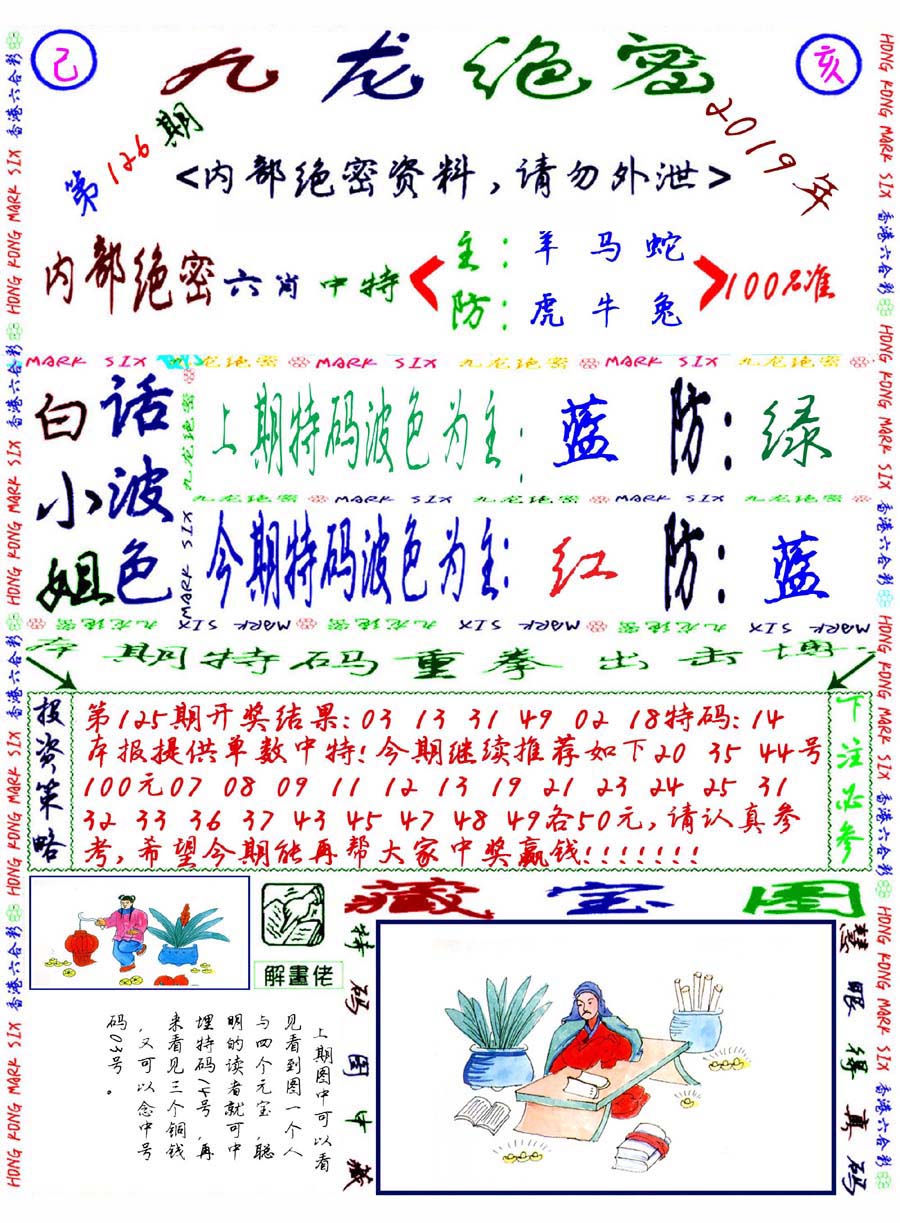 己
九龙绝密
亥
第126期
2019年
<内部绝密资料，请勿外泄>
内部绝密六肖中特
主：羊马蛇
防：虎牛兔
100%准
MARK SIX 九龙绝密 MARK SIX 九龙绝密 MARK SIX 九龙绝密
白小姐
话波色
上期特码波色为主：蓝 防：绿
九龙绝密 MARK SIX 九龙绝密 MARK SIX 九龙绝密
今期特码波色为主：红 防：蓝
九龙绝密 MARK SIX 九龙绝密 MARK SIX 九龙绝密 MARK SIX
本期特码重拳出击博
投资策略
第125期开奖结果：03 13 31 49 02 18特码：14
本报提供单数中特！今期继续推荐如下20 35 44号
100元07 08 09 11 12 13 19 21 23 24 25 31
32 33 36 37 43 45 47 48 49各50元，请认真参
考，希望今期能再帮大家中奖赢钱！！！！！！！
下注必参
解畫佬
藏宝图
上期图中可以看
见看到图一个人
与四个元宝，聪
明的读者就可中
埋特码14号，再
来看见三个铜钱
，又可以念中号
码03号。
特码图中藏
慧眼得真码
香港六合彩 HONG KONG MARK SIX 香港六合彩 HONG KONG MARK SIX 香港六合彩 HONG KONG MARK SIX 香港六合彩 HONG KONG MARK SIX
HONG KONG MARK SIX 香港六合彩 HONG KONG MARK SIX 香港六合彩 HONG KONG MARK SIX 香港六合彩 HONG KONG MARK SIX 香港六合彩